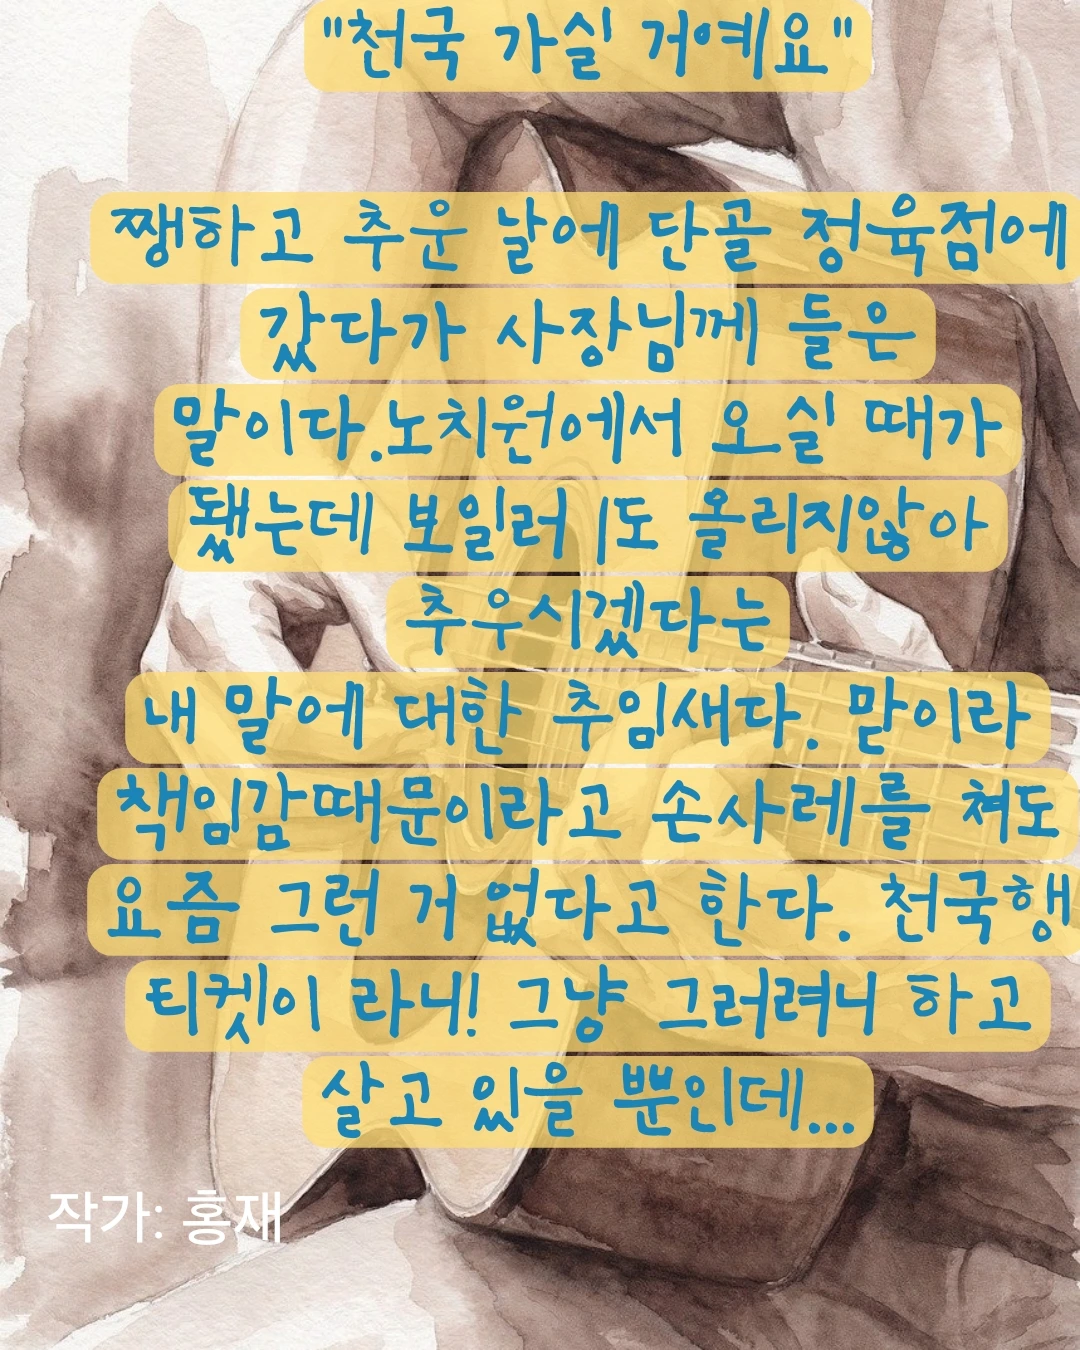 "천국 가실 거예요"
쨍하고 추운 날에 단골 정육점에
갔다가 사장님께 들은
말이다.노치원에서 오실 때가
됐는데 보일러 1도 올리지않아
추우시겠다는
내 말에 대한 추임새다. 맏이라
책임감때문이라고 손사레를 쳐도
요즘 그런 거 없다고 한다. 천국행
티켓이 라니! 그냥 그러려니 하고
살고 있을 뿐인데...
작가: 홍재